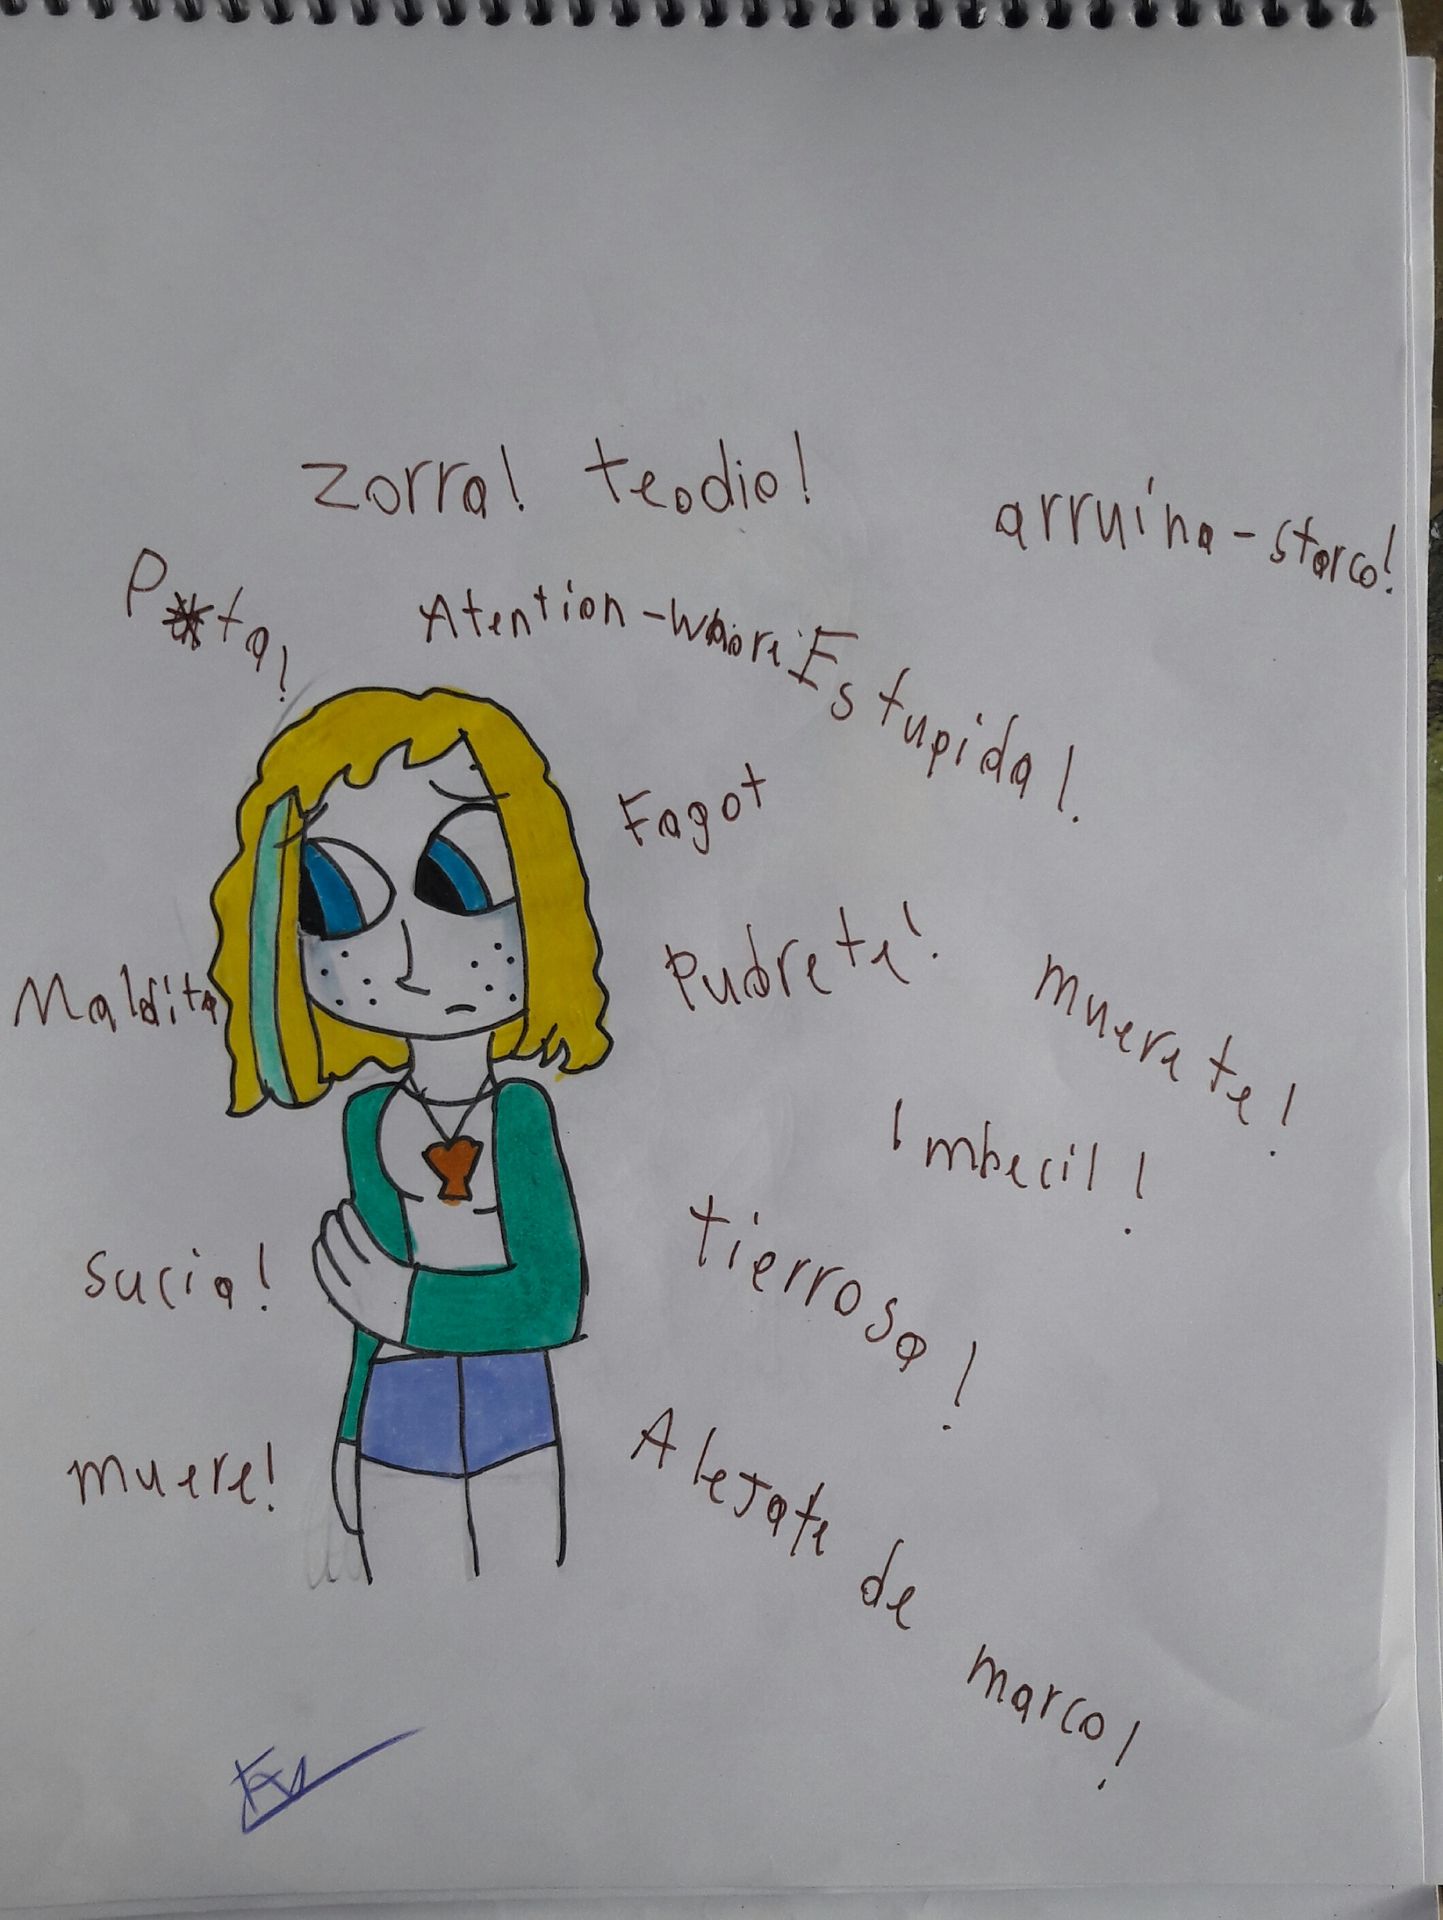 zorra! teodio!
arruina-starco!
P*ta!
Atention-whore
Estupida!
Fagot
Maldita
Pudrete!
muerete!
Imbecil!
sucia!
tierrosa!
muere!
Alejate de marco!